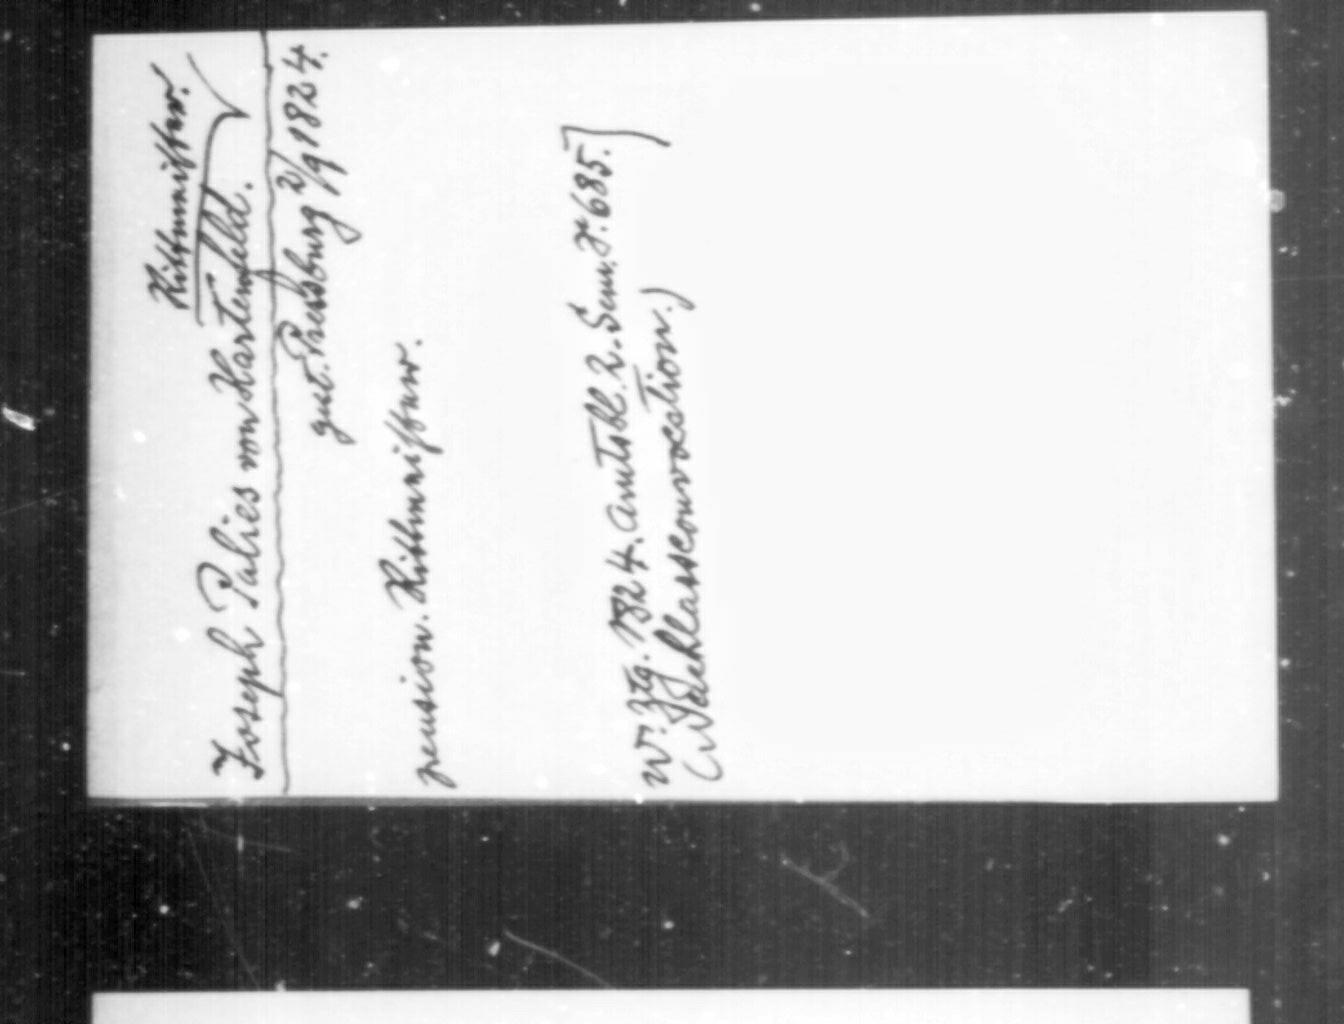 Rittmeister.
Joseph Palies von Hartenfeld.
gest. Pressburg 2/9 1824.
pension. Rittmeister.
W. Ztg. 1824. Amtsbl. 2. Sem. S. 685.]
(Nachlassconvocation.)